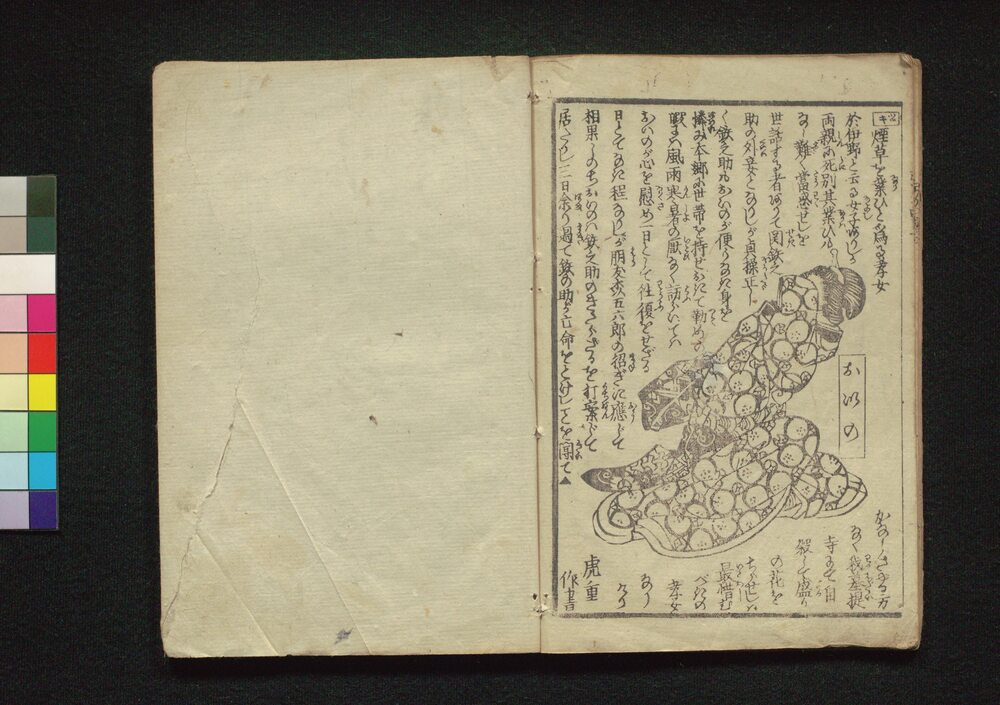 煙草を業ひと為る孝女
於伊野と云る女子あり
両親に死別其業ひも
なし難く當惑せしを
世話する者ありて関鉄之
助の外妾となりしが貞操正し
く鉄之助もおいのが便りなき身を
憐み本郷に世帯を持せおきて勤めの
暇には風雨寒暑の厭なく訪らいては
おいのが心を慰め一日として往復をせざる
日とてなき程なりしが朋友五六郎の招ぎに應じて
相果しのちおいのは鉄之助のきたらざるを打案じて
居たりし三日余り過て鉄の助が亡命をとげしことを聞て▲
おいの
かなしさやる方
なく我菩提
寺にて自
殺して盛り
の花を
ちらせしは
最惜む
べきの
孝女
なり
けり
虎重
作画